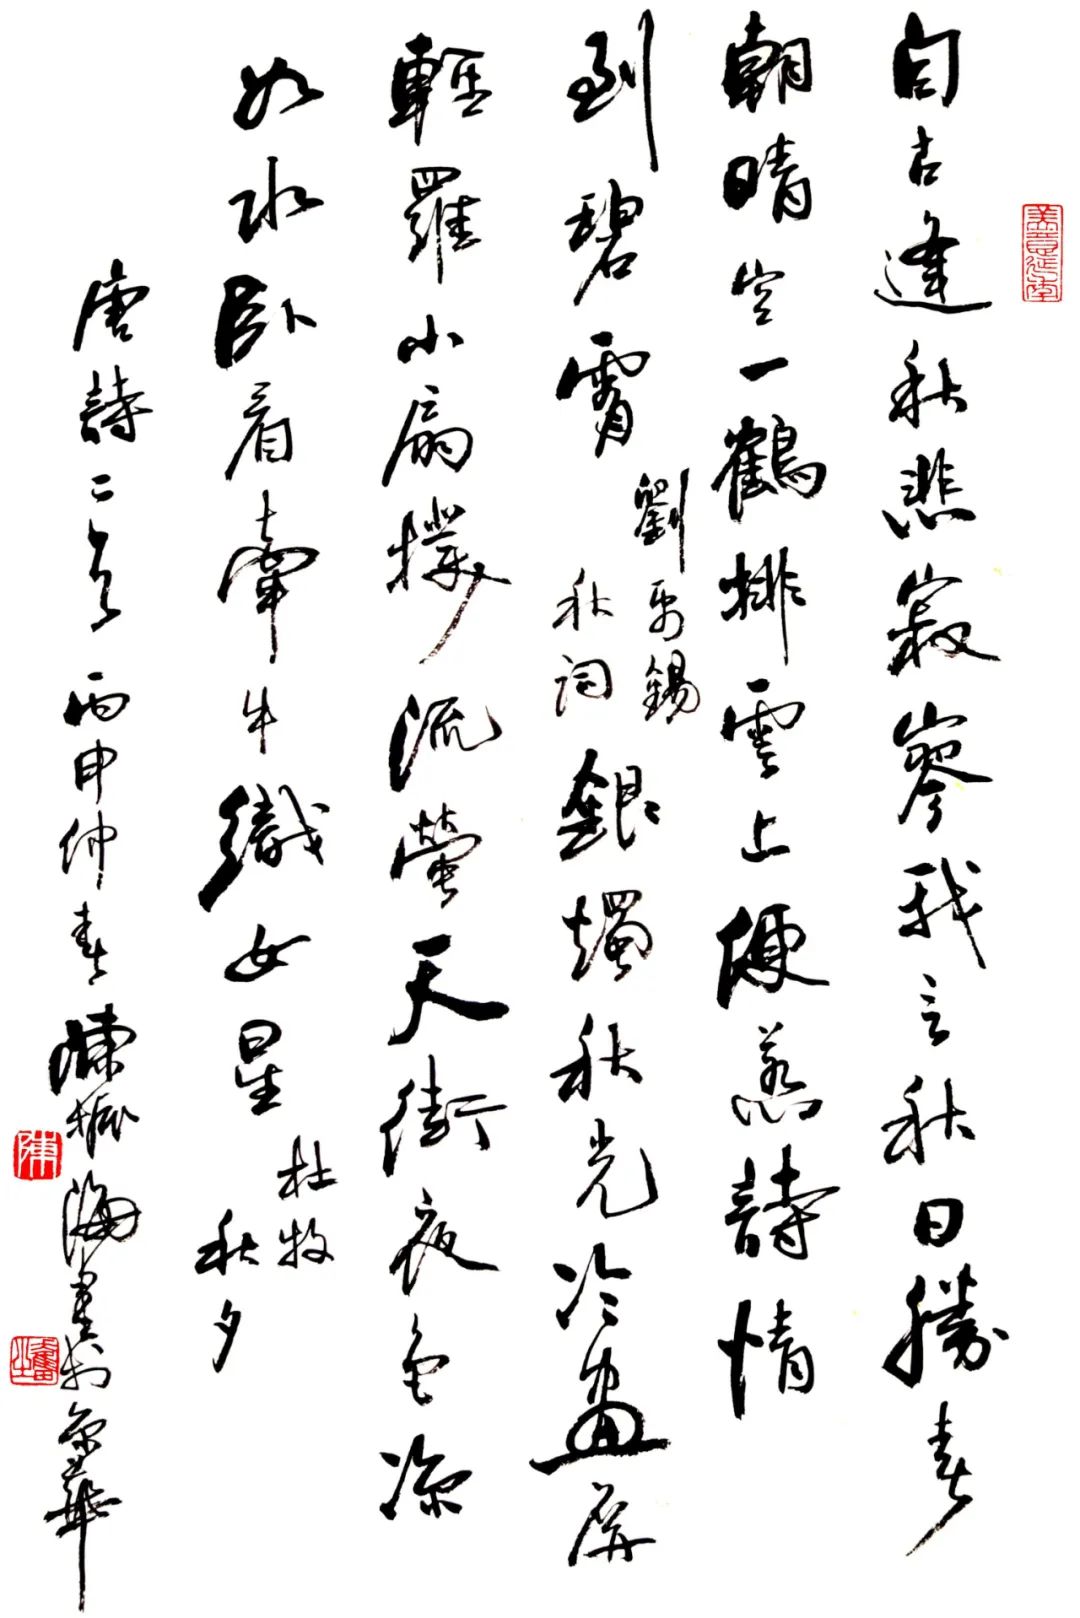 自古逢秋悲寂寥我言秋日勝春
朝晴空一鶴排雲上便惹詩情
到碧霄
劉禹錫
秋詞
銀燭秋光冷畫屏
輕羅小扇撲流螢天街夜色凉
如水卧看牽牛織女星
杜牧
秋夕
唐詩二首丙申仲春陳振海書於京華
陳